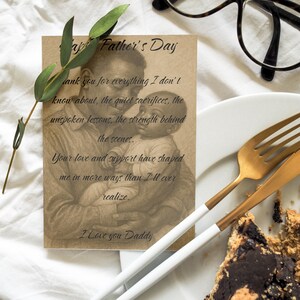 Happy Father's Day
Thank you for everything I don't
know about, the quiet sacrifices, the
unspoken lessons, the strength behind
the scenes.
Your love and support have shaped
me in more ways than I'll ever
realize.
I Love you Daddy